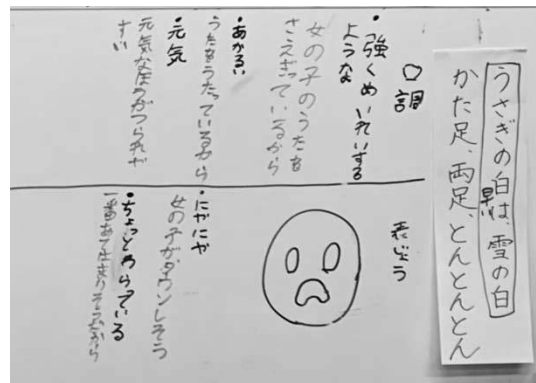 うさぎの白は、雪の白
早い
かた足、両足、とんとんとん
○調
・強くめいれいする
ような
女の子のうたを
さえぎっているから
・あかるい
うたをうたっているから
・元気
元気なほうがつられや
すい
表じょう
・にやにや
女の子がダウンしそう
・ちょっとわらっている
一番あてはまりそうだから